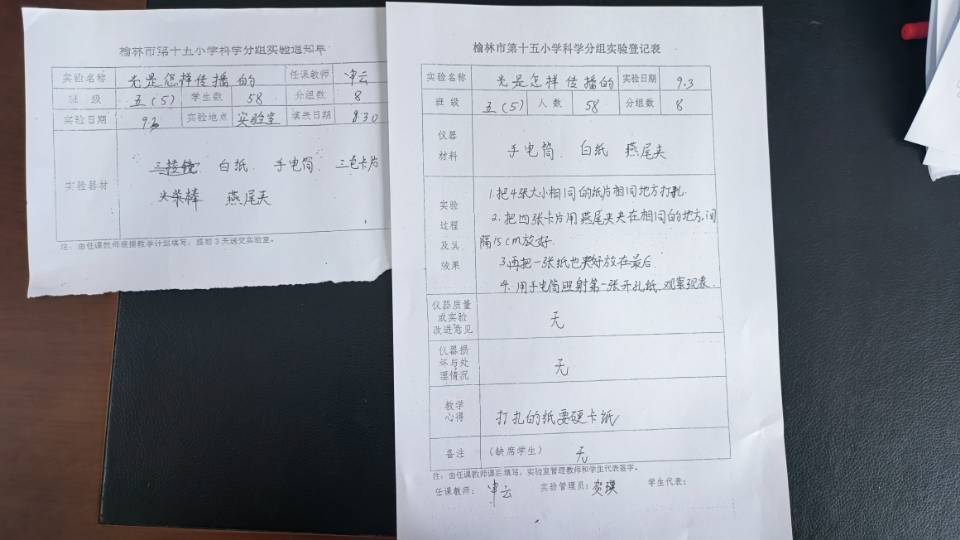 榆林市第十五小学科学分组实验通知单
实验名称 光是怎样传播的 任课教师 申云
班 级 五(5) 学生数 58 分组数 8
实验日期 9.3 实验地点 实验室 填表日期 8.30
实验器材
白纸 手电筒
燕尾夹
注：由任课教师根据教学计划填写，提前3天送交实验室。
榆林市第十五小学科学分组实验登记表
实验名称 光是怎样传播的 实验日期 9.3
班 级 五(5) 人 数 58 分组数 8
仪器
材料
手电筒 白纸 燕尾夹
实验
过程
及其
效果
1.把4张大小相同的纸片相同地方打扎
2.把四张卡片用燕尾夹夹在相同的地方,间
隔15cm放好.
3.再把一张纸也夹好放在最后.
4.用手电筒照射第一张开扎纸,观察现象.
仪器质量
或实验
改进意见
无
仪器损
坏与处
理情况
无
教学
心得
打扎的纸要硬卡纸
备注 (缺席学生) 无
注：由任课教师课后填写，实验室管理教师和学生代表签字。
任课教师： 申云 实验管理员： 学生代表：